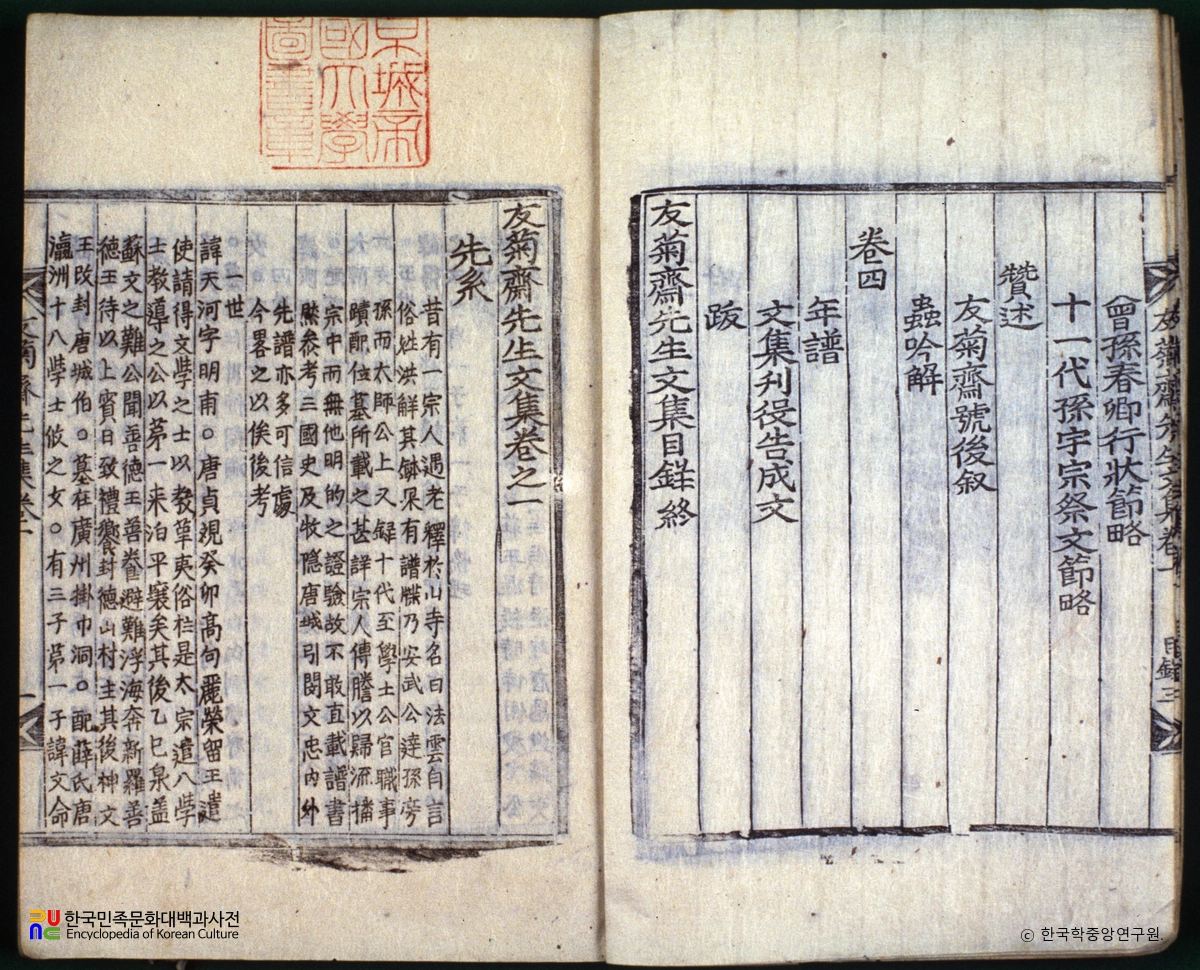 曾孫春卿行狀節略
十一代孫宇宗祭文節略
贊述
友菊齋號後叙
蟲吟解
卷四
年譜
文集刋役告成文
跋
友菊齋先生文集目錄終
目錄 三
京城帝
國大學
圖書章
友菊齋先生文集卷之一
先系
昔有一宗人遇老釋於山寺名曰法雲自言
俗姓洪解其鉢囊有譜牒乃安武公逹孫旁
孫而太師公上又錄十代至學士公官職事
蹟配位墓所載之甚詳宗人傳謄以歸流播
宗中而無他明的之證驗故不敢直載譜書
然參考三國史及牧隱唐城引閔文忠內外
先譜亦多可信處
今畧之以俟後考
一世
諱天河字明甫○唐貞觀癸卯高句麗榮留王遣
使請得文學之士以教箕夷俗於是太宗遣八學
士教導之公以第一来泊平襄矣其後乙巳泉盖
蘇文之難公聞善德王善眷避難浮海奔新羅善
德王待以上賓日致禮饗封德山村主其後神文
王改封唐城伯○墓在廣州掛巾洞○配薛氏唐
瀛洲十八學士攸之女○有三子第一子諱文命
한국민족문화대백과사전
Encyclopedia of Korean Culture
ⓒ 한국학중앙연구원.